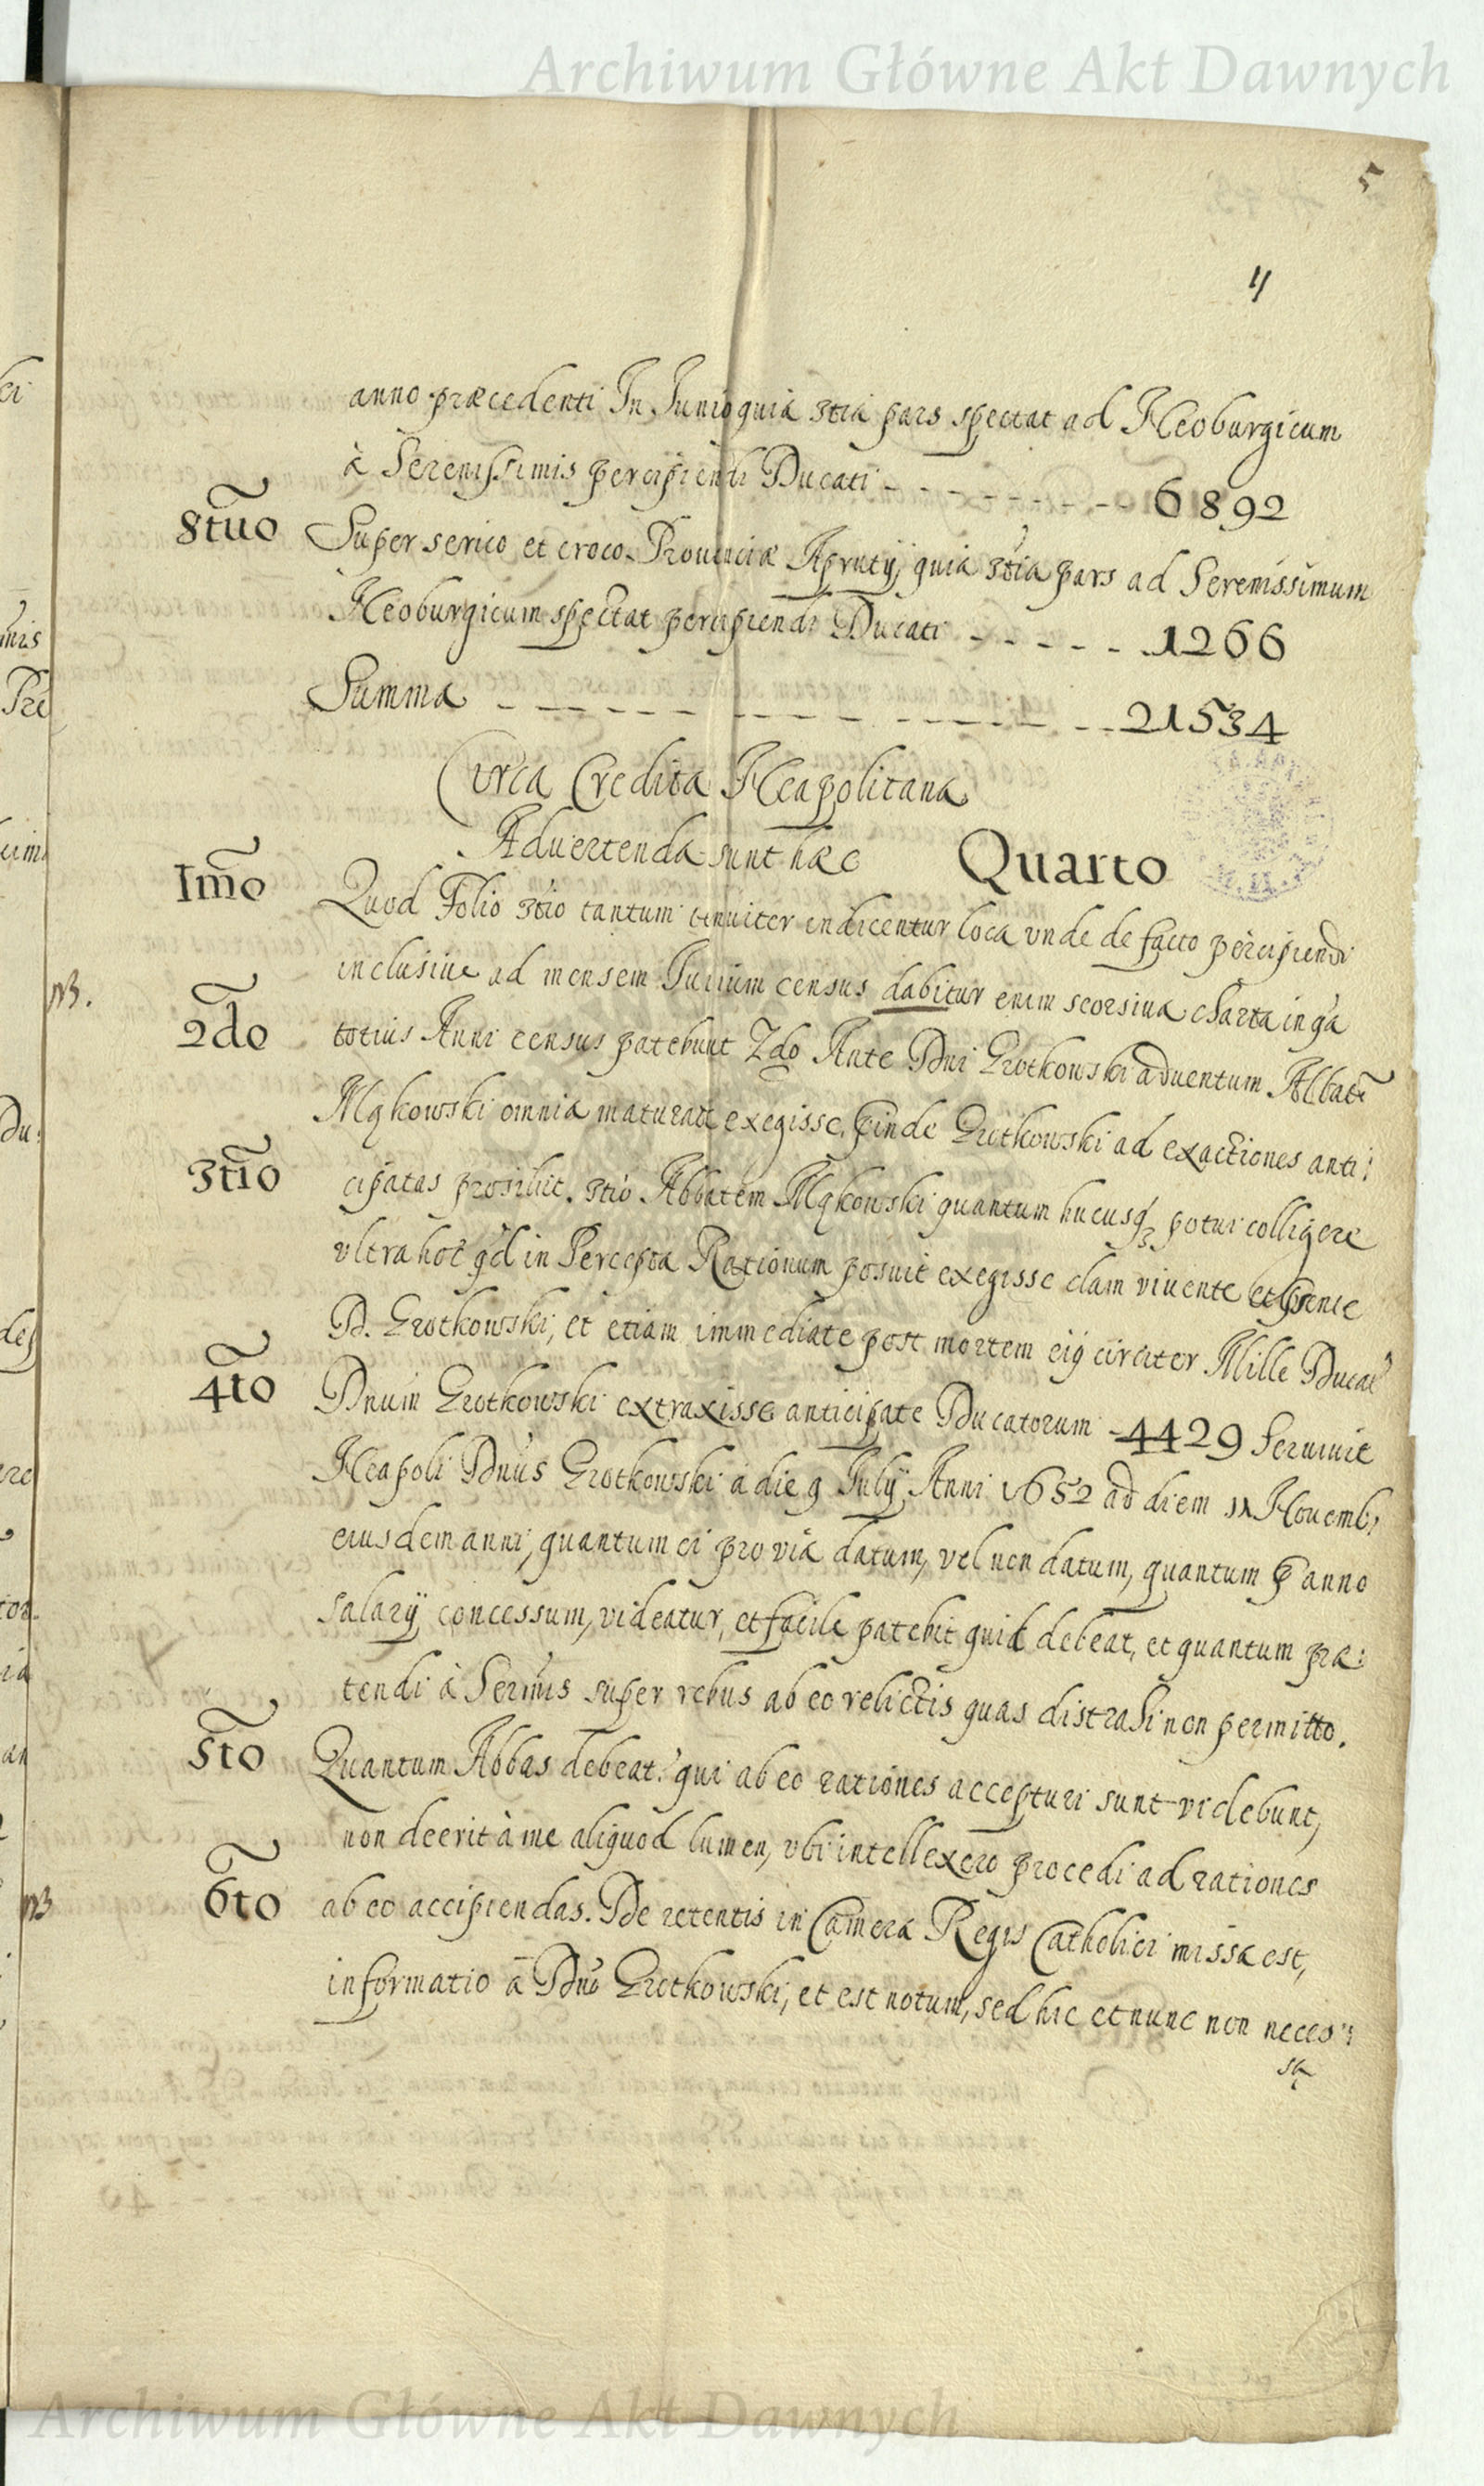 Archiwum Główne Akt Dawnych
5
4
anno præcedenti In Junio quia 3tia pars spectat ad Neoburgicum
à Serenissimis percipiendi Ducati - - - - - - - - 6892
8tuo Super serico et croco Prouinciæ Aprutij, quia 3tia pars ad Serenissimum
Neoburgicum spectat percipiendi Ducati - - - - - - 1266
Summa - - - - - - - - - - - - 21534
Circa Credita Neapolitana
Aduertenda sunt hæc Quarto
Imo Quod Folio 3tio tantum tenuiter indicentur loca vnde de facto percipiendi
inclusiue ad mensem Junium census dabitur enim scorsiua charta in qa
2do totius Anni census patebunt 2do Ante Dni Grotkowski aduentum Abbate
Mąkowski omnia maturate exegisse, hinde Grotkowski ad exactiones anti:
3tio cipatas prosiliit. 3tio Abbatem Mąkowski quantum hucusq3 potui colligere
vltra hoc qd in Percepta Rationum posuit exegisse clam viuente et pñte
D. Grotkowski, et etiam immediate post mortem eiq circiter Mille Ducat
4to Dnum Grotkowski extraxisse anticipate Ducatorum - 4429 Seruiuit
Neapoli Dnus Grotkowski à die 9 July Anni 1652 ad diem 11 Nouemb:
eiusdem anni, quantum ei pro via datum, vel non datum, quantum p anno
salarij concessum, videatur, et facile patebit quid debeat, et quantum præ:
tendi à Sermis super rebus ab eo relictis quas distrahi non permitto.
5to Quantum Abbas debeat: qui ab eo rationes accepturi sunt videbunt,
non deerit à me aliquod lumen, vbi intellexero procedi ad rationes
6to ab eo accipiendas. De retentis in Camera Regis Catholici missa est,
informatio à Dno Grotkowski, et est notum, sed hic et nunc non neces:
sa
Archiwum Główne Akt Dawnych